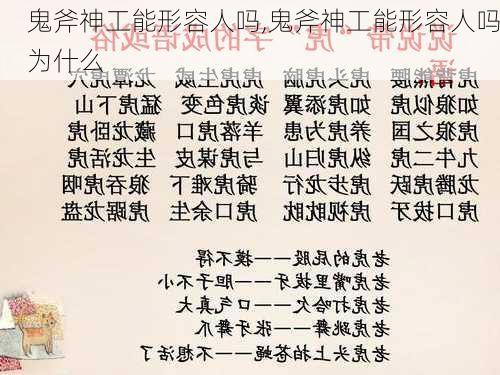 鬼斧神工能形容人吗,鬼斧神工能形容人吗
为什么
说说带“虎”字的成语或俗语
虎背熊腰 虎头虎脑 虎虎生威 龙潭虎穴
如狼似虎 如虎添翼 谈虎色变 猛虎下山
虎狼之国 养虎为患 羊落虎口 藏龙卧虎
九牛二虎 纵虎归山 与虎谋皮 生龙活虎
龙腾虎跃 虎步龙行 骑虎难下 狼吞虎咽
虎口拔牙 虎视眈眈 虎口余生 虎踞龙盘
老虎的屁股———摸不得
老虎嘴里拔牙———胆子不小
老虎打哈欠———口气真大
老虎跳舞———张牙舞爪
老虎头上拍苍蝇———不想活了